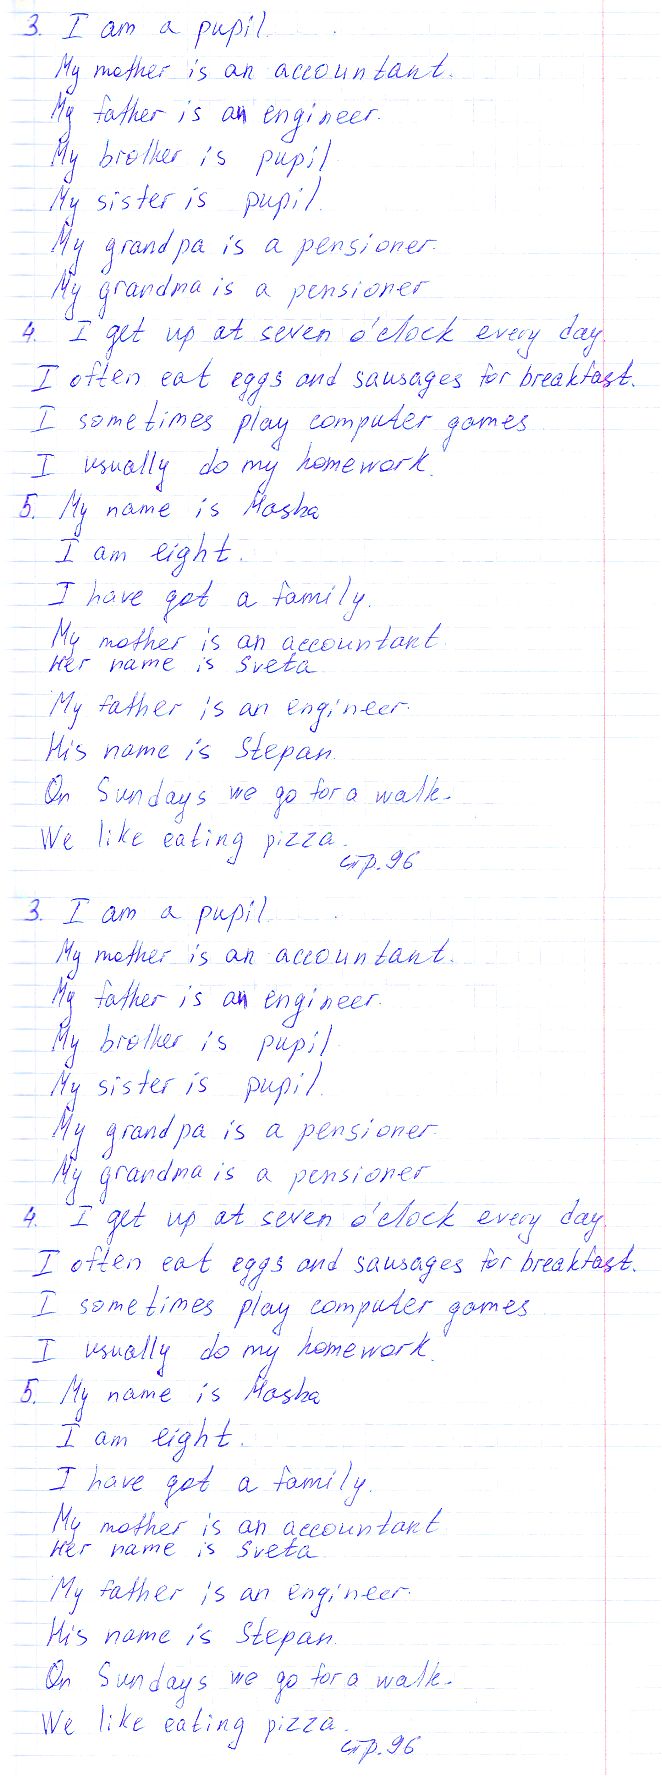 3. I am a pupil.
My mother is an accountant.
My father is an engineer.
My brother is pupil
My sister is pupil.
My grandpa is a pensioner.
My grandma is a pensioner
4. I get up at seven o'clock every day.
I often eat eggs and sausages for breakfast.
I sometimes play computer games
I usually do my homework.
5. My name is Masha
I am eight.
I have got a family.
My mother is an accountant
Her name is Sveta
My father is an engineer.
His name is Stepan.
On Sundays we go for a walk.
We like eating pizza.
стр. 96
3. I am a pupil.
My mother is an accountant.
My father is an engineer.
My brother is pupil
My sister is pupil.
My grandpa is a pensioner
My grandma is a pensioner
4. I get up at seven o'clock every day.
I often eat eggs and sausages for breakfast.
I sometimes play computer games
I usually do my homework.
5. My name is Masha
I am eight.
I have got a family.
My mother is an accountant
Her name is Sveta
My father is an engineer.
His name is Stepan.
On Sundays we go for a walk.
We like eating pizza.
стр. 96